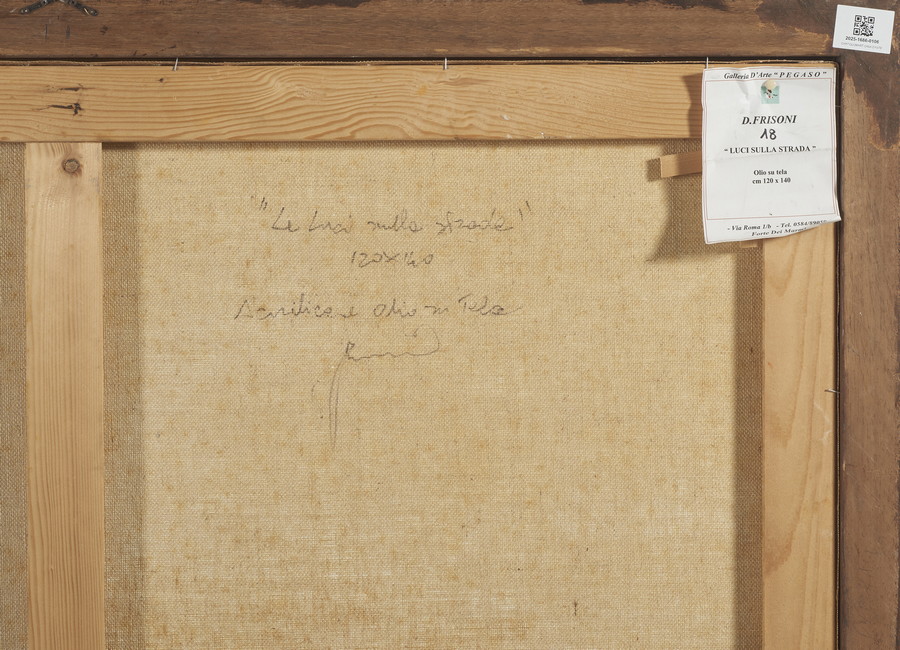 2025-1660-0108
Galleria D'Arte " P E G A S O "
D.FRISONI
18
" LUCI SULLA STRADA "
Olio su tela
cm 120 x 140
- Via Roma 1/b - Tel. 0584/
Forte Dei
"Le Luci sulla strada"
120x140
Acrilico e Olio su Tela